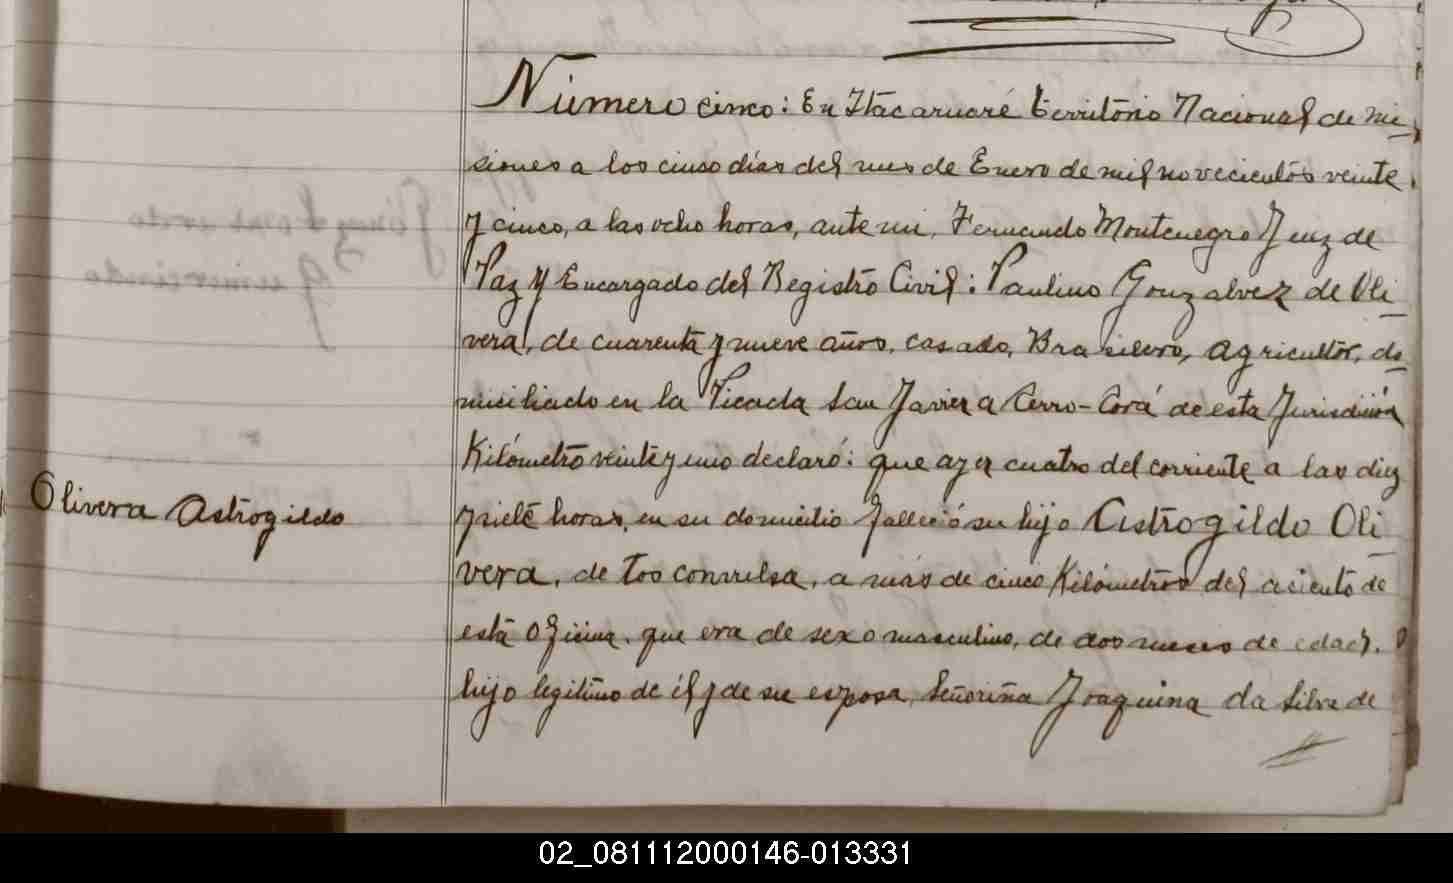 Número cinco: En Itacaruaré territorio Nacional de Mi-
siones a los cinco dias del mes de Enero de mil novecientos veinte
y cinco, a las ocho horas, ante mi, Fernando Montenegro Juez de
Paz y Encargado del Registro Civil: Paulino Gonzalvez de Oli-
vera, de cuarenta y nueve años, casado, Brasilero, agricultor, do-
miciliado en la Picada San Javier a Cerro-Corá de esta Jurisdición
Kilómetro veinte y uno declaró: que ayer cuatro del corriente a las diez
Olivera Astrogildo
y siete horas, en su domicilio falleció su hijo Astrogildo Oli-
vera, de tos convulsa, a más de cinco Kilómetros del aciento de
esta Oficina, que era de sexo masculino, de dos meses de edad,
hijo legitimo de él y de su esposa, Señoriña Joaquina da Silva de
02_081112000146-013331